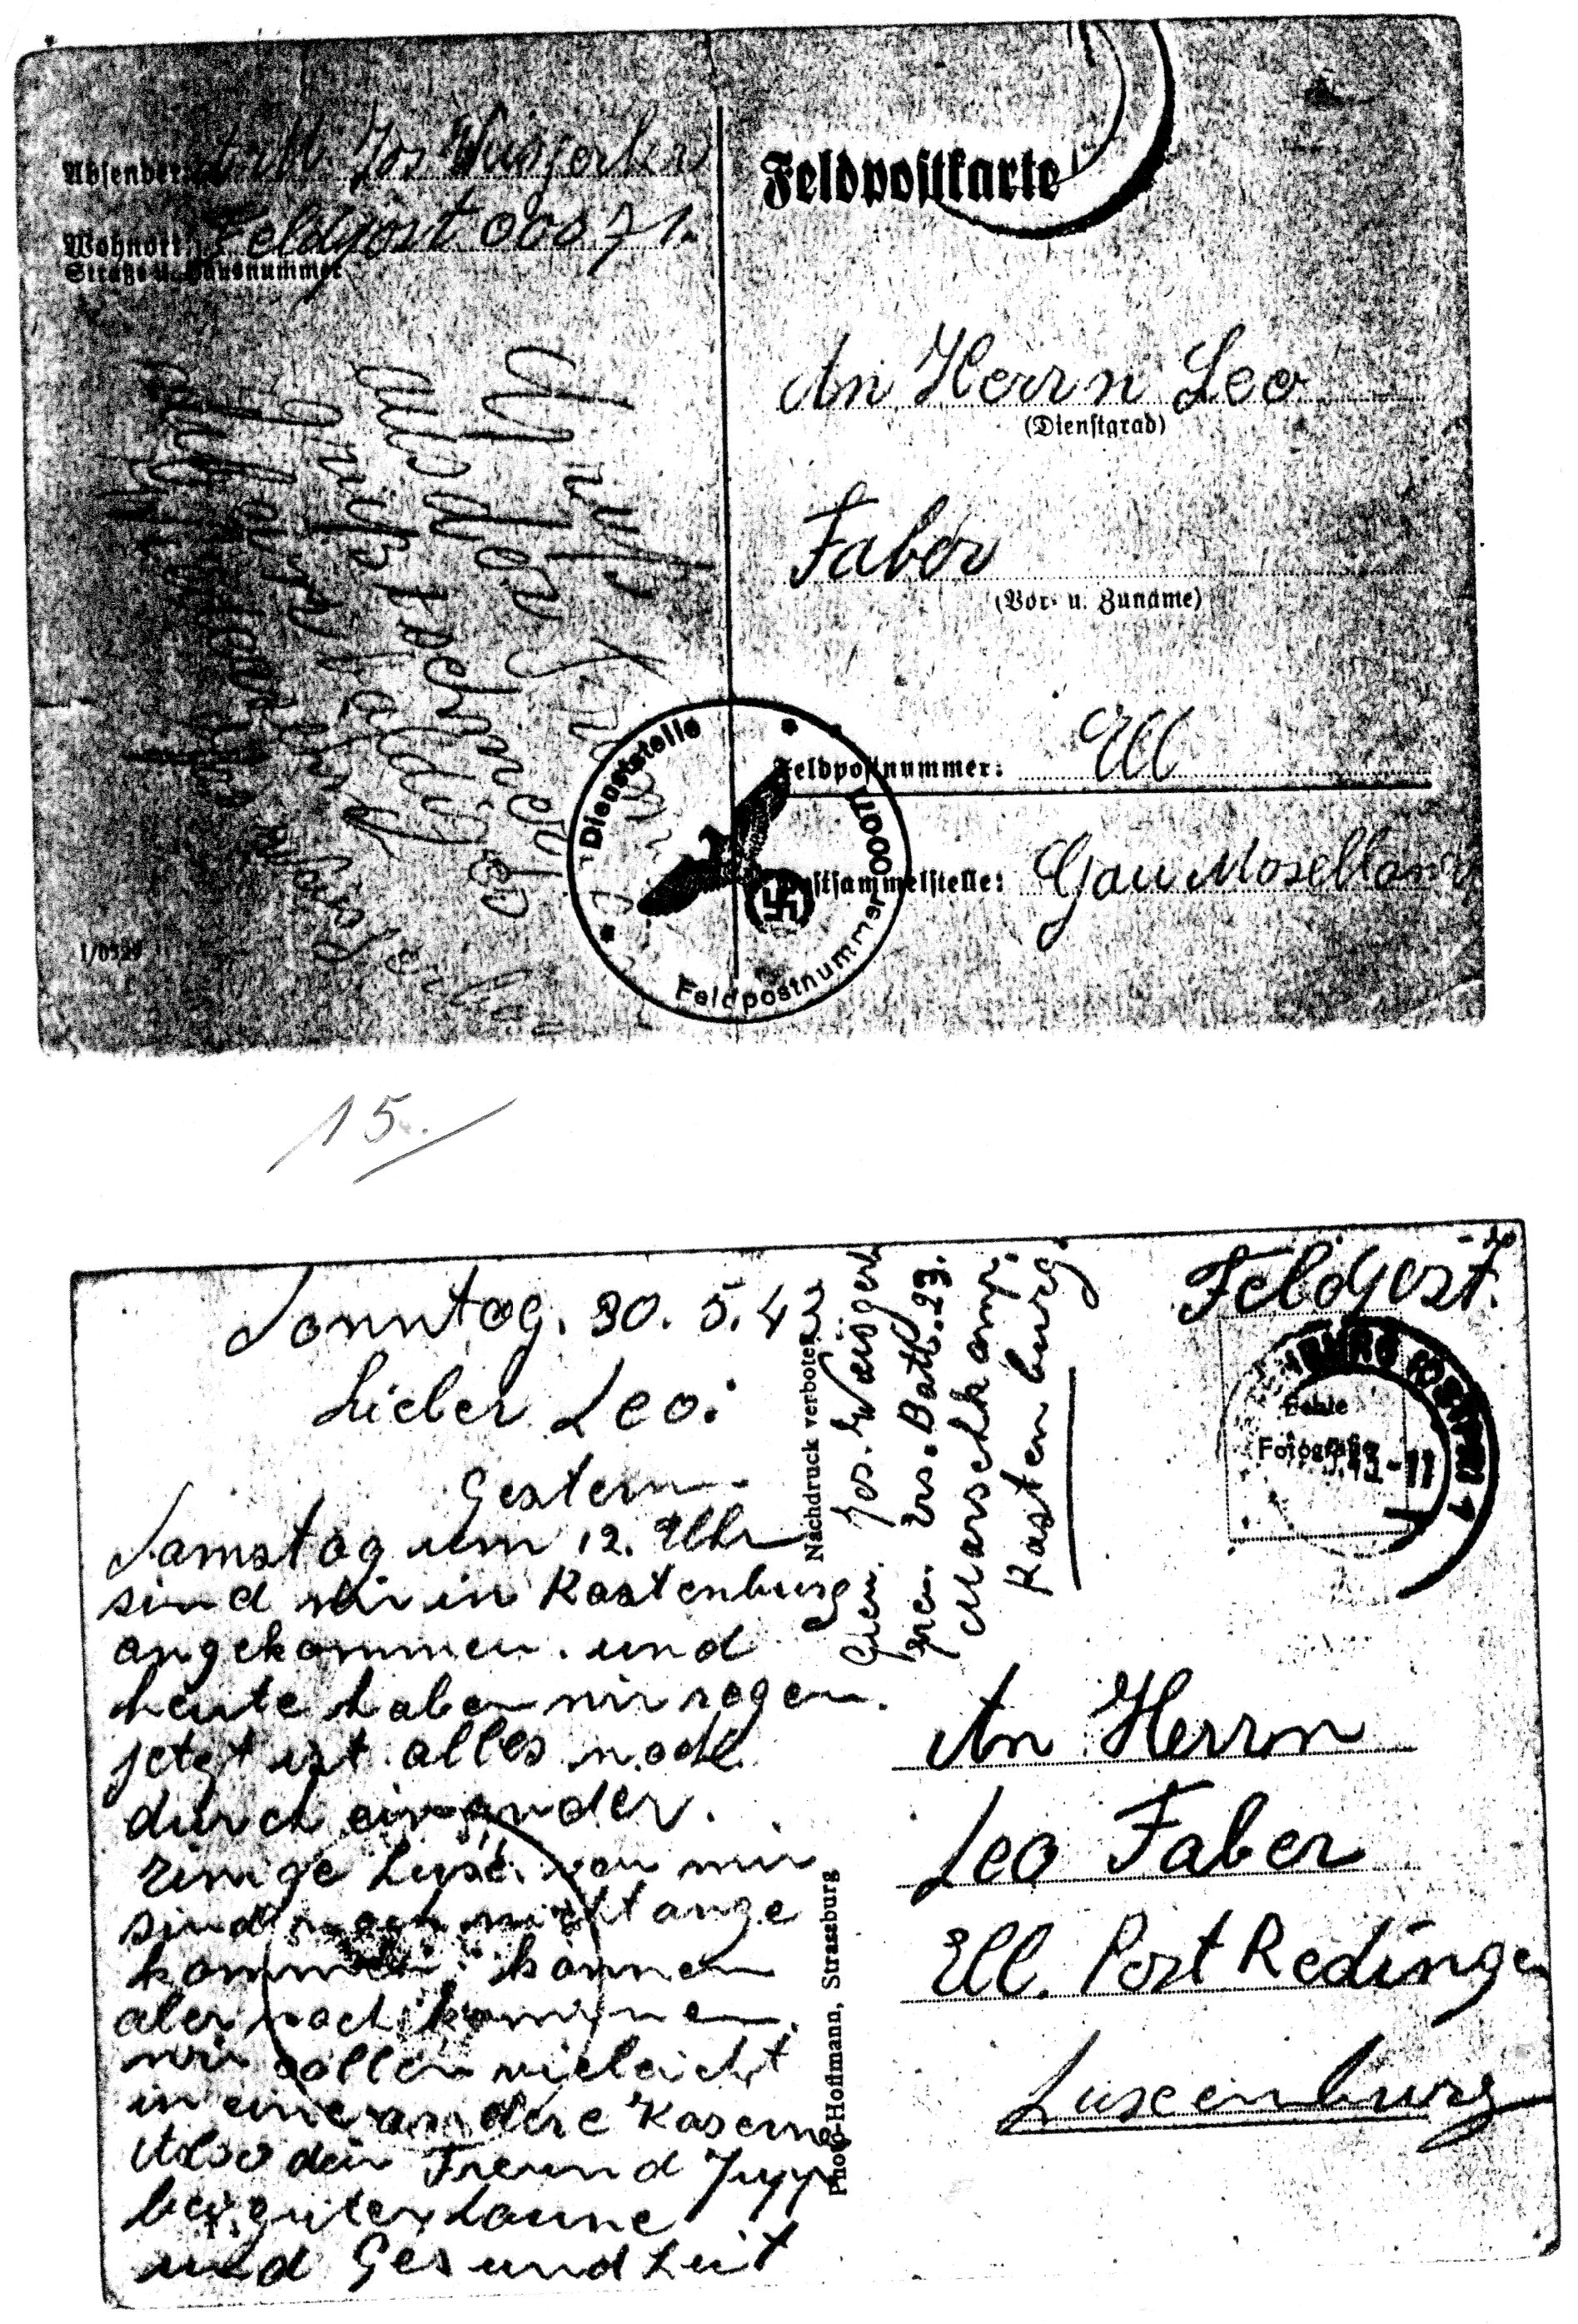 Absender: Jos
Wohnort: Feldpost 00071
Straße u. Hausnummer
Gruß
aus dem
baldiges
1/0529
Feldpostkarte
An Herrn Leo
(Dienstgrad)
Faber
(Vor- u. Zuname)
Feldpostnummer: Ell
Postsammelstelle: Gau Moselland
Dienststelle
Feldpostnummer 00071
15.
Sonntag. 30. 5. 43
Lieber Leo:
Gestern
Samstag um 12. Uhr
sind wir in Rastenburg
angekommen. und
heute haben wir regen.
jetzt ist alles noch
durch einander.
einige von mir
sind noch nicht ange
kommen können
aber noch kommen.
wir sollen vieleicht
in eine andere Kaserne
Also dein Freund Jupp
bei guter Laune
und Gesundheit
Nachdruck verboten
Photo-Hoffmann, Strassburg
Gren. Jos.
Gren. Ers. Batl. 23.
Marschkomp.
Rastenburg
Feldpost.
Fotografie
An Herrn
Leo Faber
Ell. Post Redingen
Luxemburg